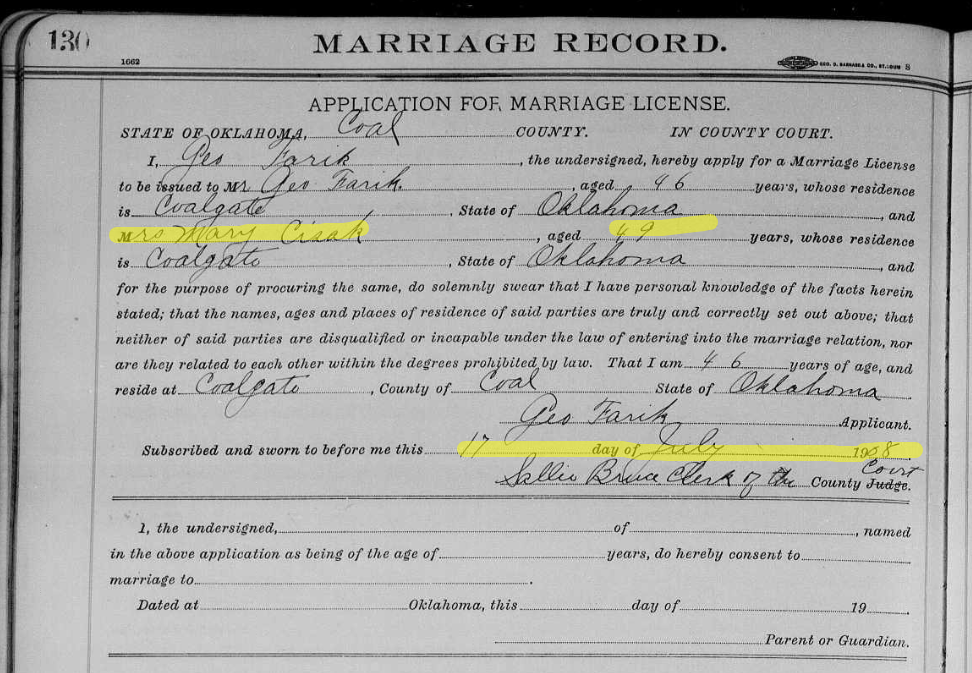 130
MARRIAGE RECORD.
1662
GEO. D. BARNARD & CO., ST. LOUIS 8
APPLICATION FOR MARRIAGE LICENSE.
STATE OF OKLAHOMA, Coal COUNTY. IN COUNTY COURT.
I, Geo Farik, the undersigned, hereby apply for a Marriage License
to be issued to Mr Geo Farik, aged 46 years, whose residence
is Coalgate, State of Oklahoma, and
Mrs Mary Cisak, aged 49 years, whose residence
is Coalgate, State of Oklahoma, and
for the purpose of procuring the same, do solemnly swear that I have personal knowledge of the facts herein
stated; that the names, ages and places of residence of said parties are truly and correctly set out above; that
neither of said parties are disqualified or incapable under the law of entering into the marriage relation, nor
are they related to each other within the degrees prohibited by law. That I am 46 years of age, and
reside at Coalgate, County of Coal State of Oklahoma
Geo Farik Applicant.
Subscribed and sworn to before me this 17 day of July 1908.
Sallie Bruce Clerk of the County Judge. Court
I, the undersigned, of , named
in the above application as being of the age of years, do hereby consent to
marriage to .
Dated at Oklahoma, this day of 19 .
Parent or Guardian.